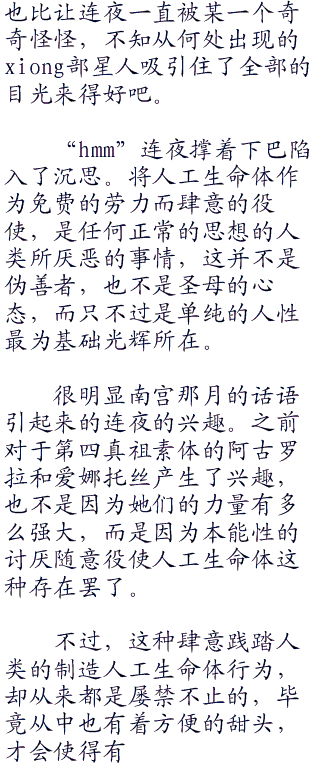 也比让连夜一直被某一个奇
奇怪怪，不知从何处出现的
xiong部星人吸引住了全部的
目光来得好吧。
“hmm”连夜撑着下巴陷
入了沉思。将人工生命体作
为免费的劳力而肆意的役
使，是任何正常的思想的人
类所厌恶的事情，这并不是
伪善者，也不是圣母的心
态，而只不过是单纯的人性
最为基础光辉所在。
很明显南宫那月的话语
引起来的连夜的兴趣。之前
对于第四真祖素体的阿古罗
拉和爱娜托丝产生了兴趣，
也不是因为她们的力量有多
么强大，而是因为本能性的
讨厌随意役使人工生命体这
种存在罢了。
不过，这种肆意践踏人
类的制造人工生命体行为，
却从来都是屡禁不止的，毕
竟从中也有着方便的甜头，
才会使得有